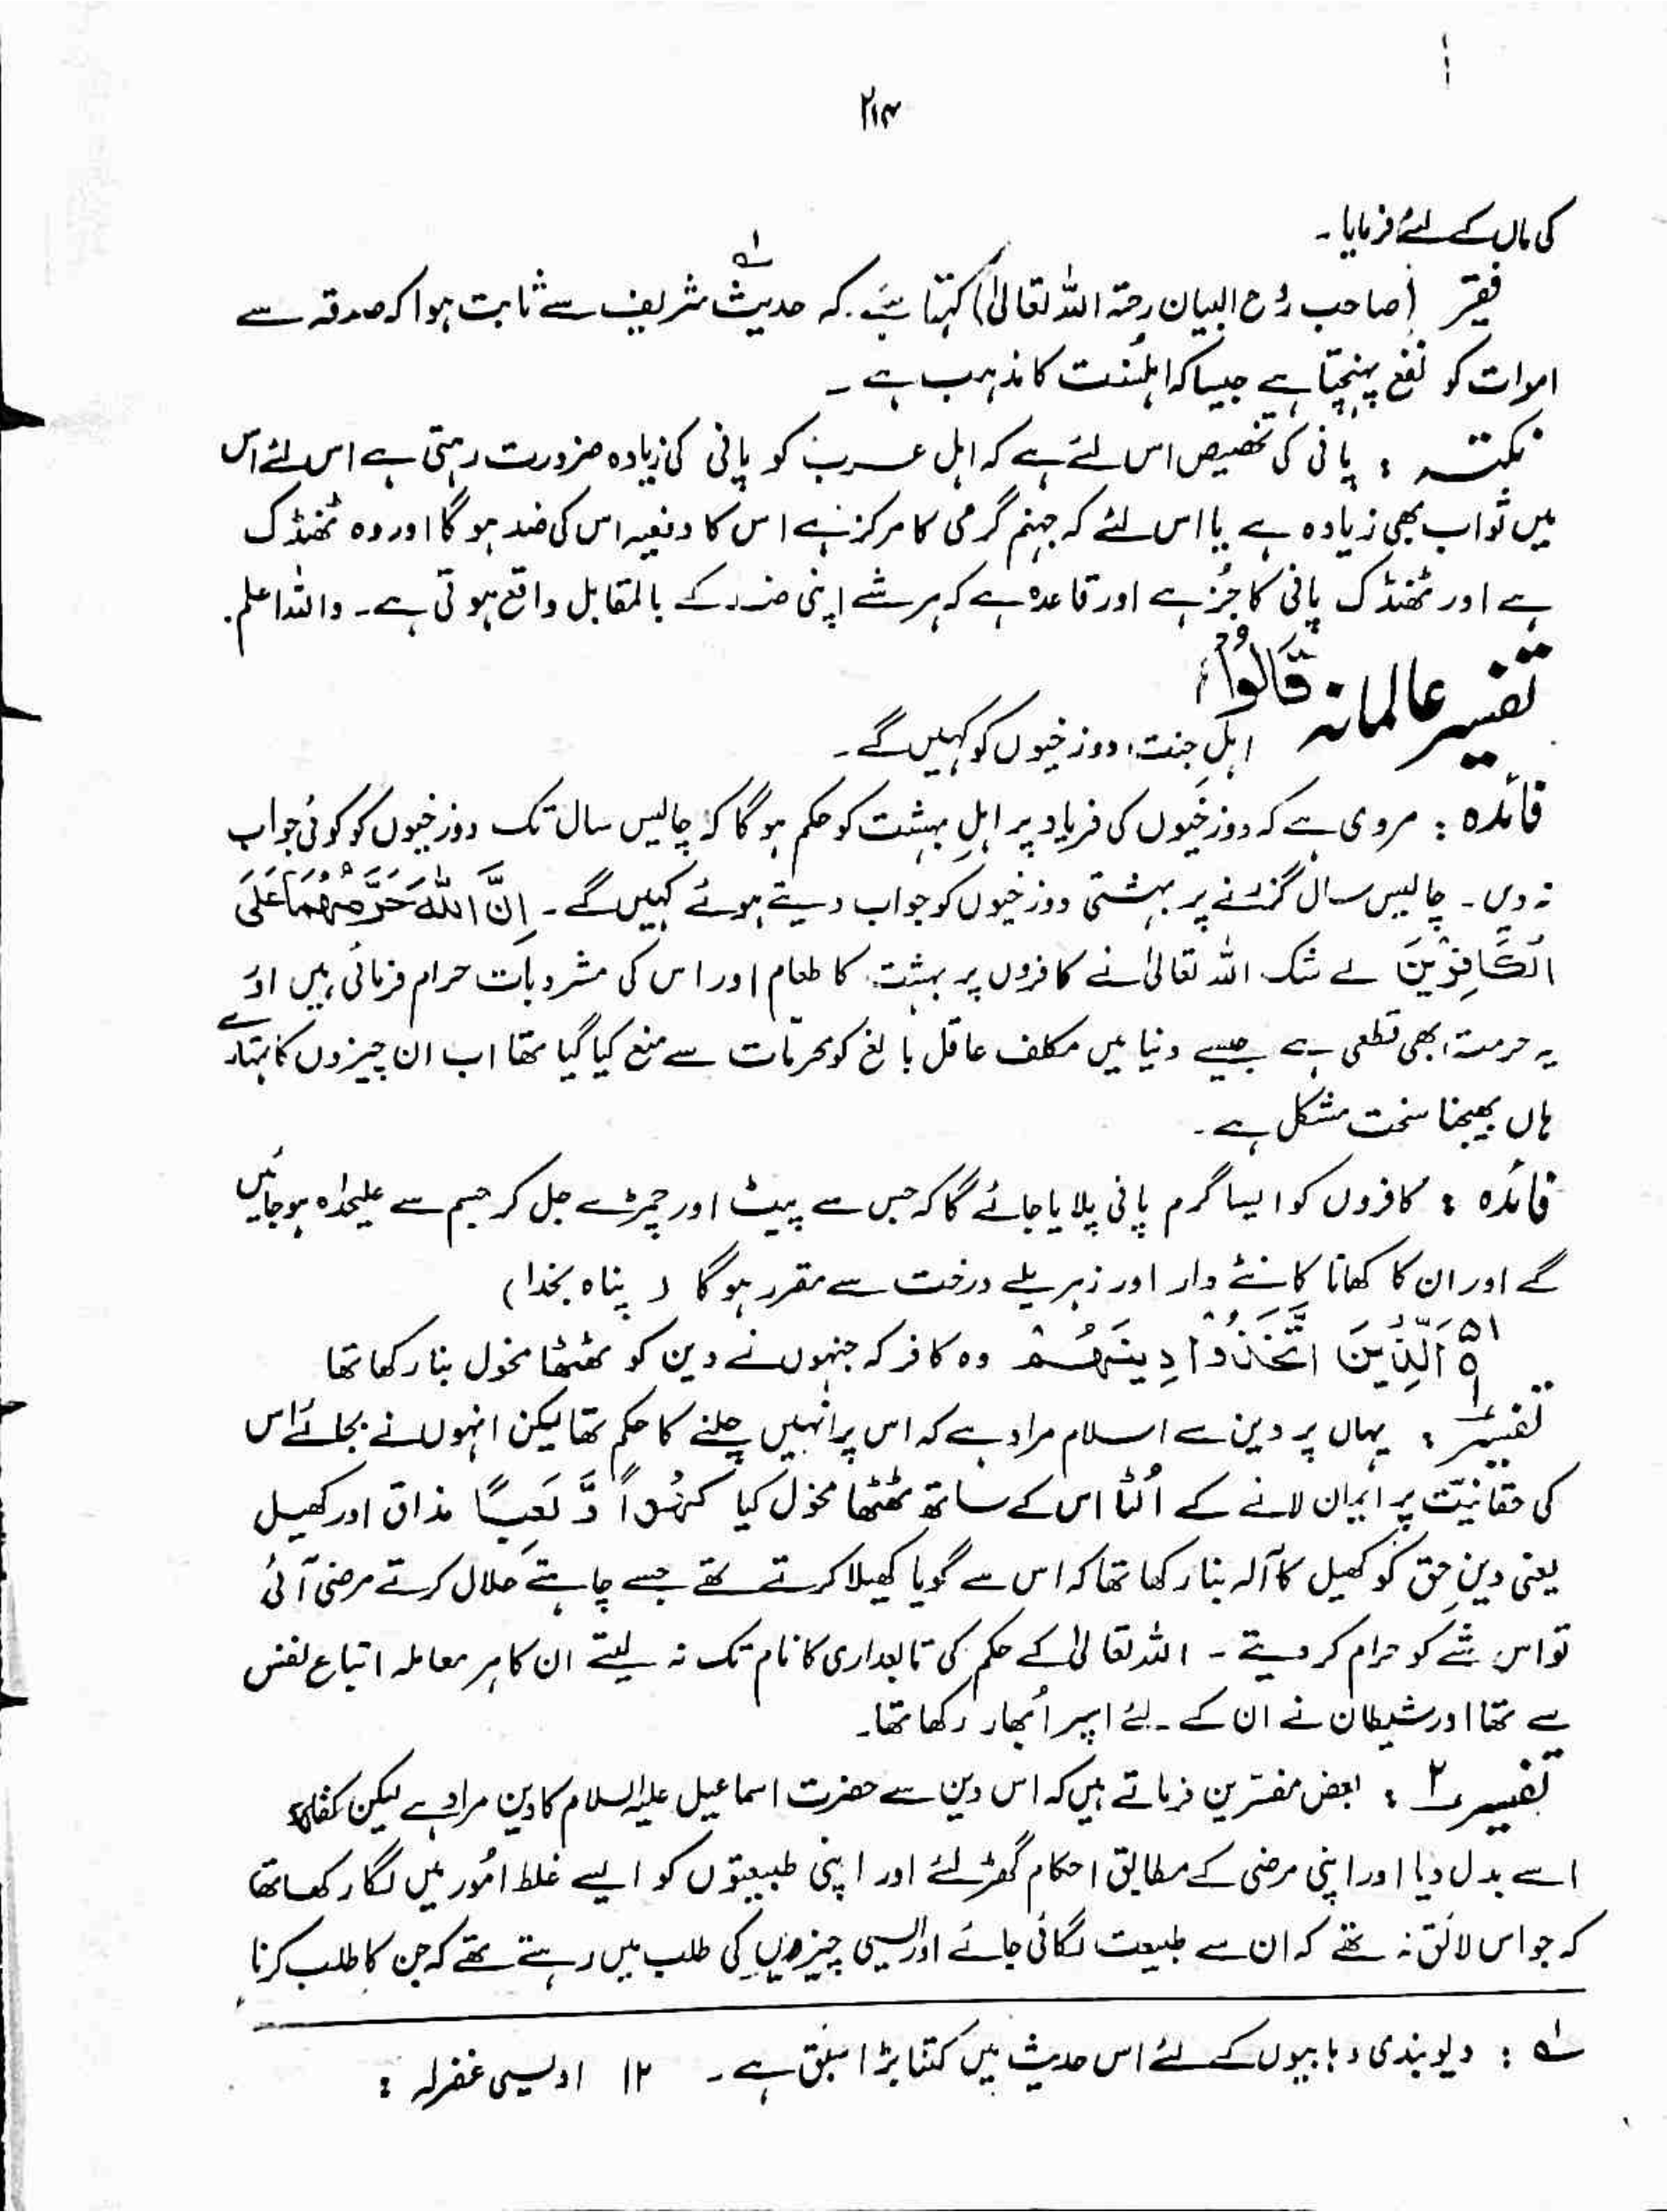 ۲۱۳
کی ماں کے لئے فرمایا۔
فقیر (صاحب روح البیان رحمۃ اللہ تعالیٰ) کہتا ہے کہ حدیث لہ شریف سے ثابت ہوا کہ صدقہ سے
اموات کو نفع پہنچتا ہے جیسا کہ اہلسنت کا مذہب ہے ۔
نکتہ : پانی کی تخصیص اس لئے ہے کہ اہل عرب کو پانی کی زیادہ ضرورت رہتی ہے اس لئے اس
میں ثواب بھی زیادہ ہے یا اس لئے کہ جہنم گرمی کا مرکز ہے اس کا دفعیہ اس کی ضد ہو گا اور وہ ٹھنڈک
ہے اور ٹھنڈک پانی کا جُز ہے اور قاعدہ ہے کہ ہر شے اپنی ضد کے بالمقابل واقع ہوتی ہے۔ واللہ اعلم.
تفسیر عالمانہ قَالُوْا
اہلِ جنت دوزخیوں کو کہیں گے۔
فائدہ : مروی ہے کہ دوزخیوں کی فریاد پر اہلِ بہشت کو حکم ہو گا کہ چالیس سال تک دوزخیوں کو کوئی جواب
نہ دیں۔ چالیس سال گزرنے پر بہشتی دوزخیوں کو جواب دیتے ہوئے کہیں گے۔ اِنَّ اللّٰہَ حَرَّمَھُمَا عَلَی
الْکَافِرِیْنَ بے شک اللہ تعالیٰ نے کافروں پر بہشت کا طعام اور اس کی مشروبات حرام فرمائی ہیں اور
یہ حرمت بھی قطعی ہے جیسے دنیا میں مکلف عاقل بالغ کو محرمات سے منع کیا گیا تھا اب ان چیزوں کا تمہارے
ہاں بھیجنا سخت مشکل ہے۔
فائدہ : کافروں کو ایسا گرم پانی پلایا جائے گا کہ جس سے پیٹ اور چمڑے جل کر جسم سے علیحدہ ہو جائیں
گے اور ان کا کھانا کانٹے دار اور زہریلے درخت سے مقرر ہو گا ( پناہ بخدا )
۵۱ اَلَّذِیْنَ اتَّخَذُوْا دِیْنَھُمْ وہ کافر کہ جنہوں نے دین کو ٹھٹھا مخول بنا رکھا تھا
تفسیر ۱ : یہاں پر دین سے اسلام مراد ہے کہ اس پر انہیں چلنے کا حکم تھا لیکن انہوں نے بجائے اس
کی حقانیّت پر ایمان لانے کے اُلٹا اس کے ساتھ ٹھٹھا مخول کیا لَھْوًا وَّ لَعِبًا مذاق اور کھیل
یعنی دینِ حق کو کھیل کا آلہ بنا رکھا تھا کہ اس سے گویا کھیلا کرتے تھے جسے چاہتے حلال کرتے مرضی آئی
تو اس شے کو حرام کر دیتے ۔ اللہ تعالیٰ کے حکم کی تابعداری کا نام تک نہ لیتے ان کا ہر معاملہ اتباع نفس
سے تھا اور شیطان نے ان کے لئے اسپر اُبھار رکھا تھا۔
تفسیر ۲ : بعض مفسّرین فرماتے ہیں کہ اس دین سے حضرت اسماعیل علیہ السلام کا دین مراد ہے لیکن کفار
اسے بدل دیا اور اپنی مرضی کے مطابق احکام گھڑ لئے اور اپنی طبیعتوں کو ایسے غلط امُور میں لگا رکھا تھا
کہ جو اس لائق نہ تھے کہ ان سے طبیعت لگائی جائے اور ایسی چیزوں کی طلب میں رہتے تھے کہ جن کا طلب کرنا
لہ : دیوبندی وہابیوں کے لئے اس حدیث میں کتنا بڑا سبق ہے ۔ ۱۲ اویسی غفرلہ :